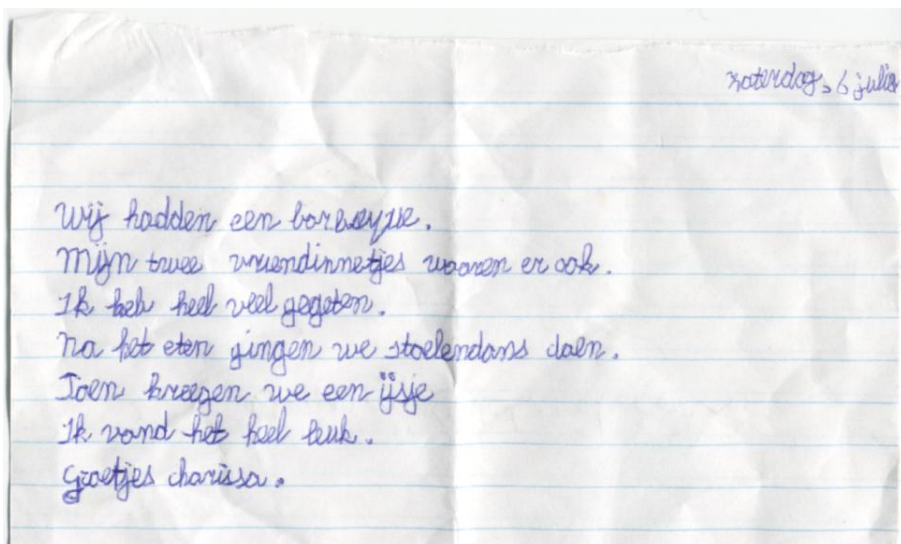 zaterdag, 6 juli
Wij hadden een barbeque.
Mijn twee vriendinnetjes waaren er ook.
Ik heb heel veel gegeten.
na het eten gingen we stoelendans doen.
Toen kreegen we een ijsje
Ik vond het heel leuk.
groetjes charissa.